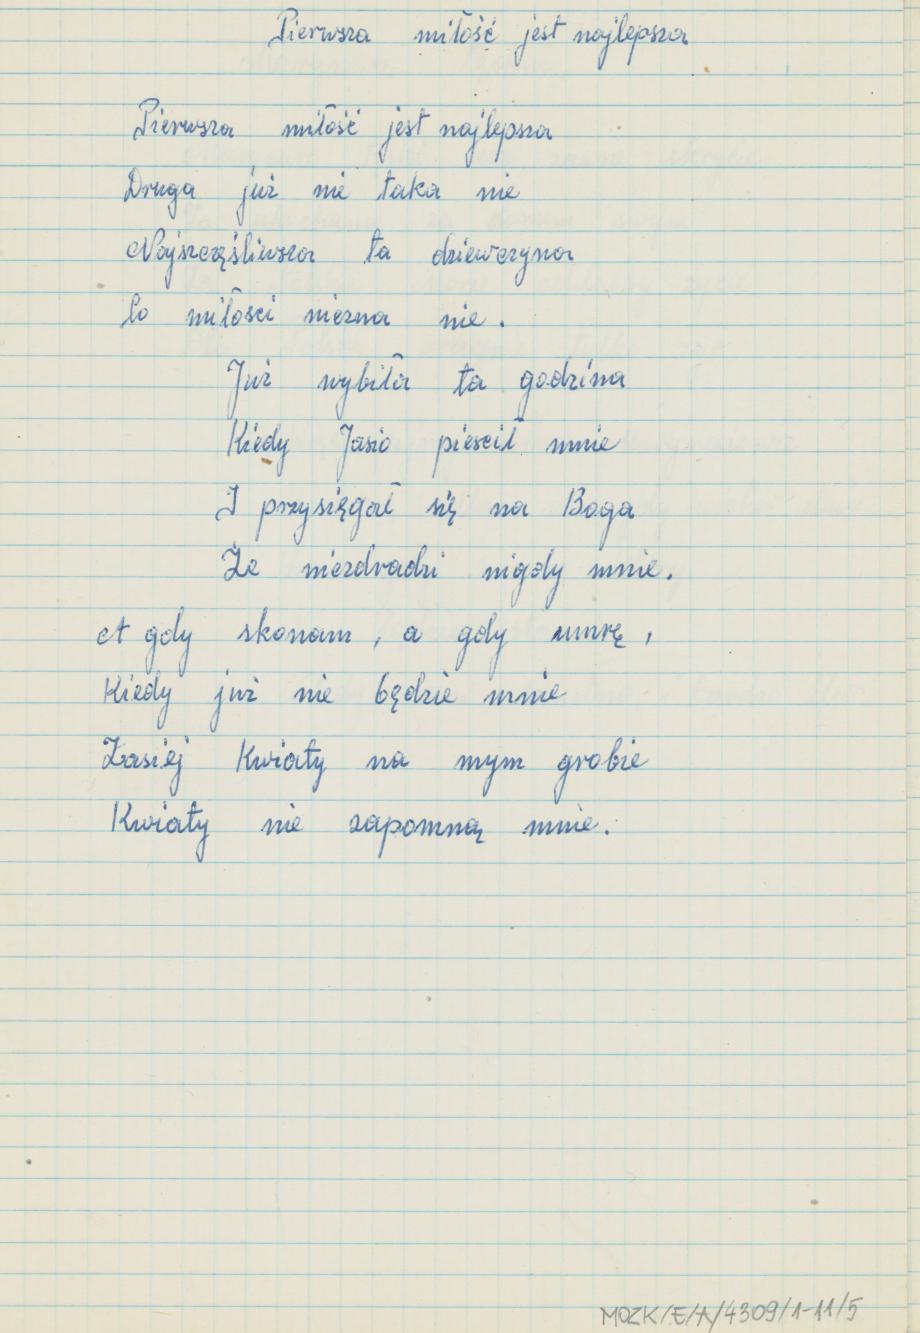 Pierwsza miłość jest najlepsza
Pierwsza miłość jest najlepsza
Druga już nie taka nie
Najszczęśliwsza ta dziewczyna
Co miłości niezna nie.
Już wybiła ta godzina
Kiedy Jasio pieścił mnie
I przysięgał się na Boga
Że niezdradzi nigdy mnie.
A gdy skonam, a gdy umrę,
Kiedy już nie będzie mnie
Zasiej Kwiaty na mym grobie
Kwiaty nie zapomną mnie.
MOZK/E/A/4309/1-11/5